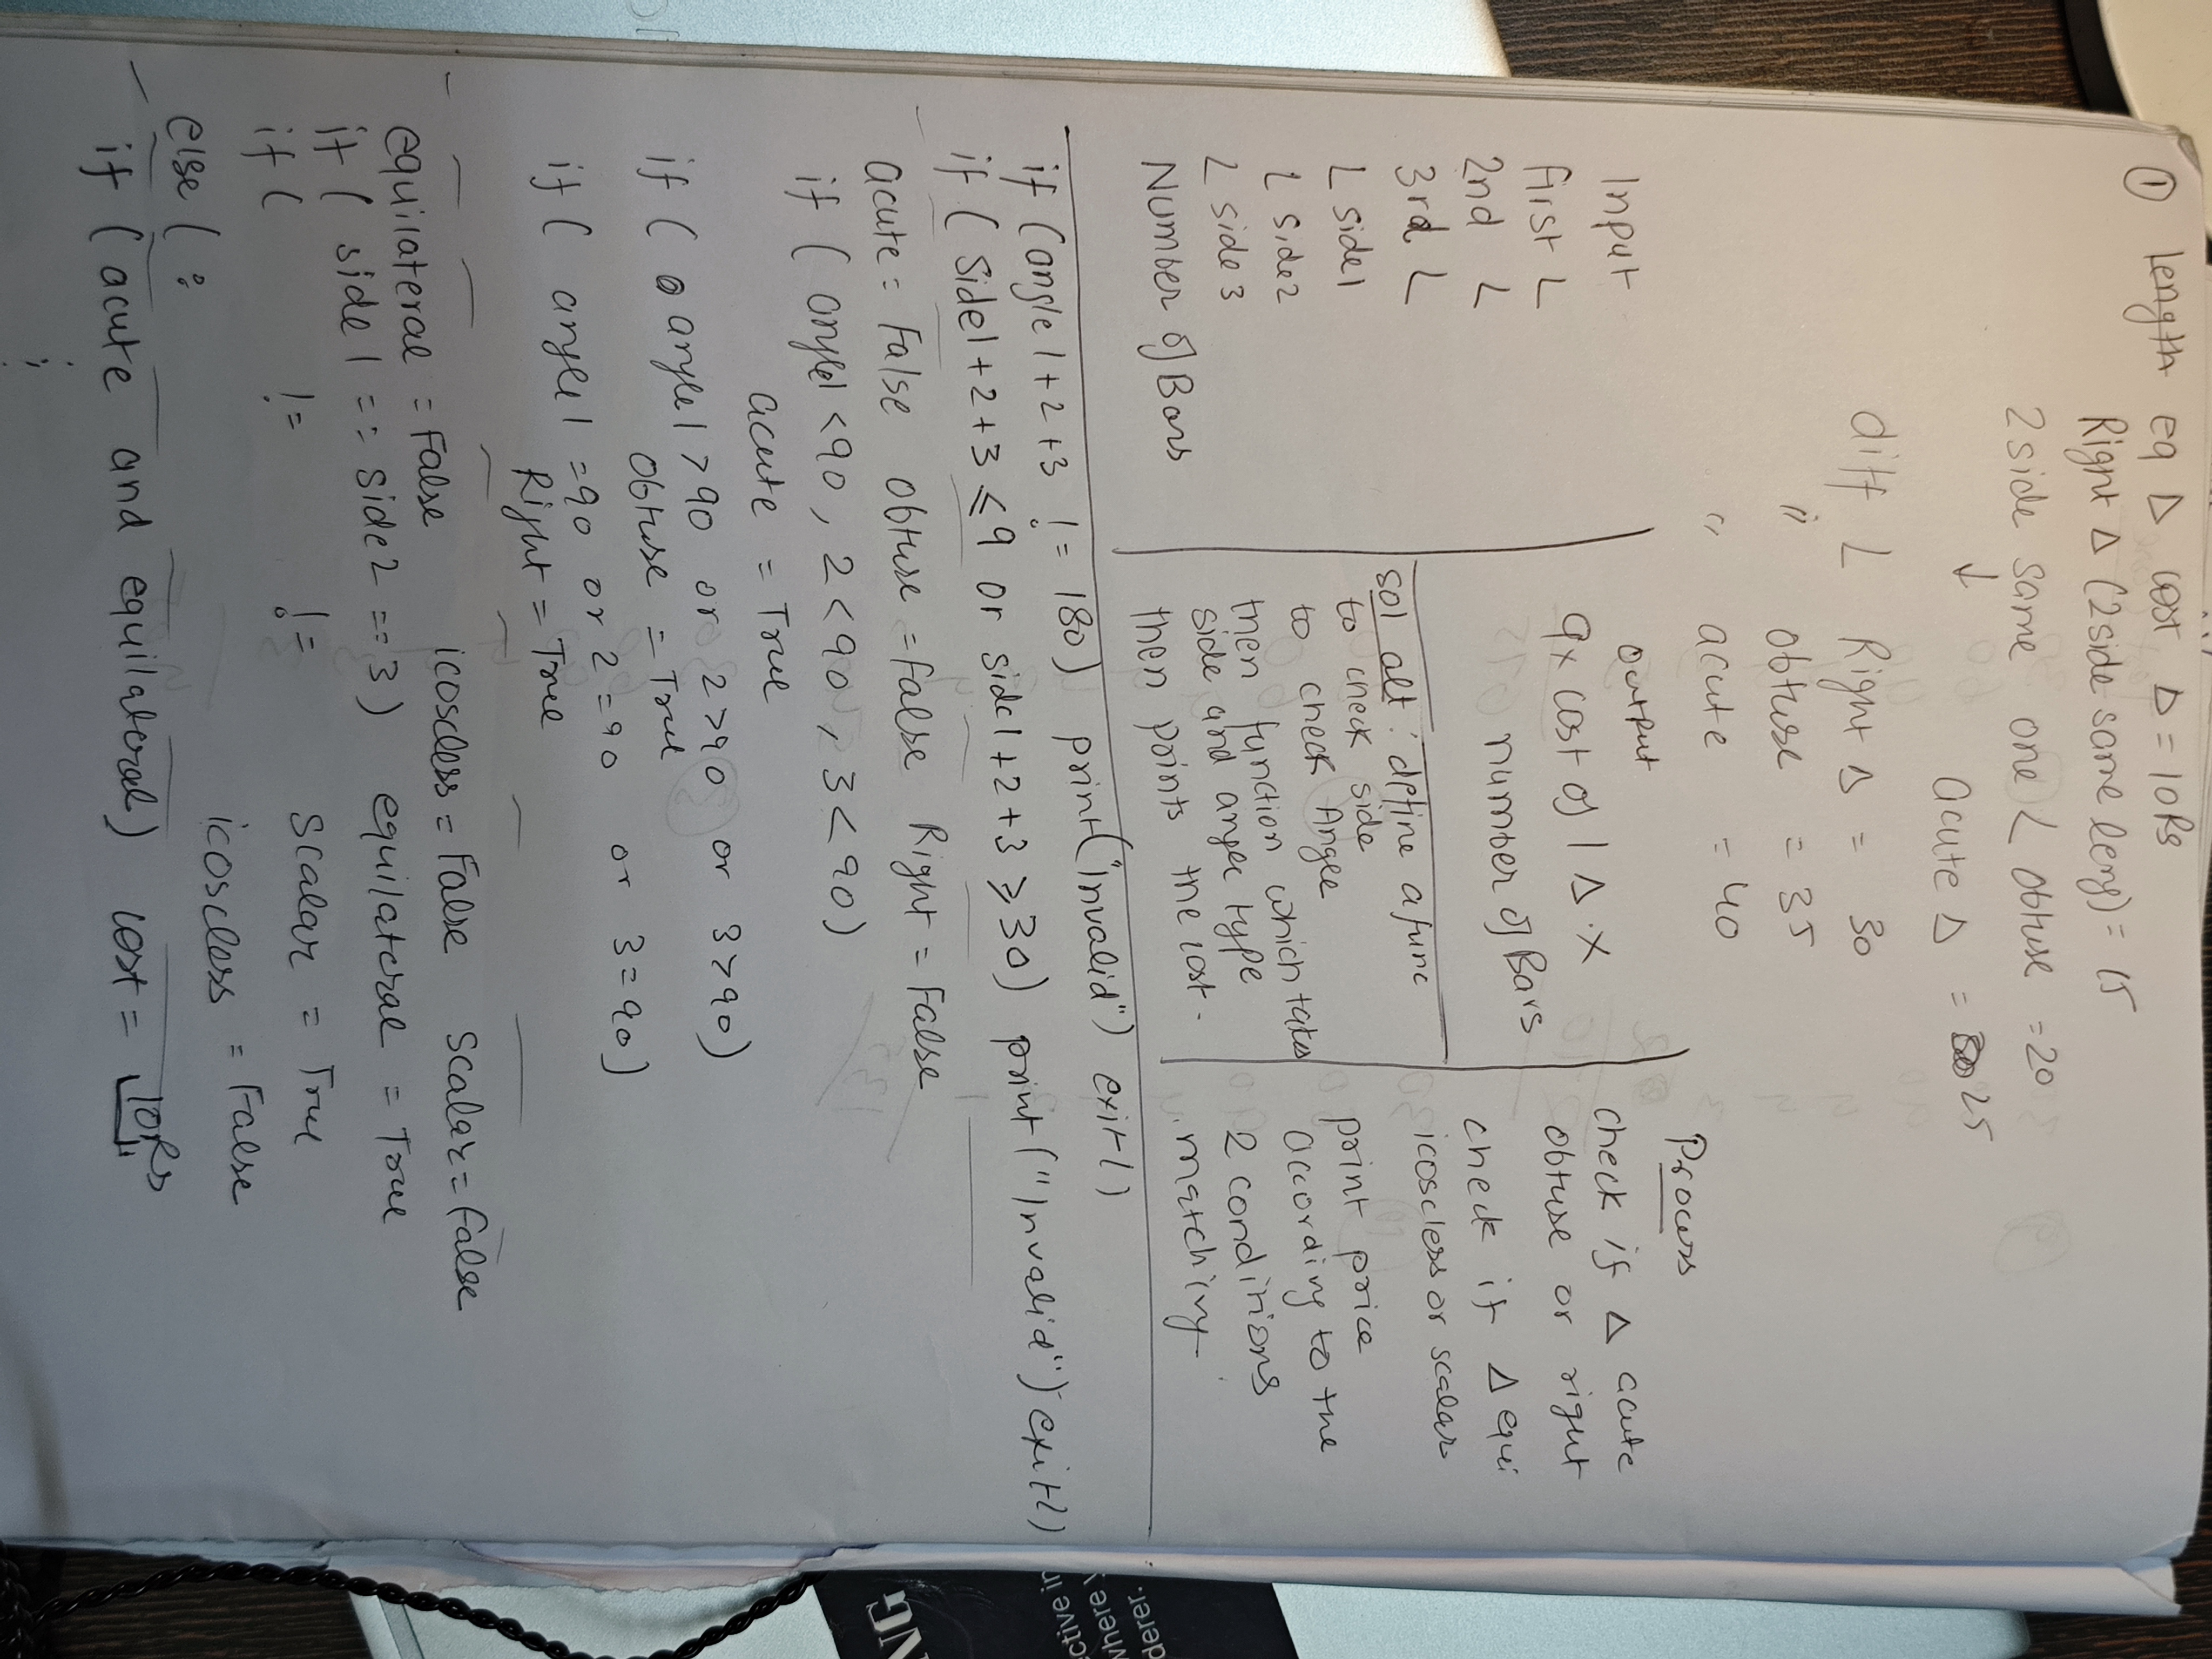 ① length eq Δ cost Δ = 10Rs
Right Δ (2side same leng) = 15
2side same one ∠ obtuse = 20
↓ acute Δ = 25
diff ∠ Right Δ = 30
" obtuse = 35
" acute = 40
Input
first ∠
2nd ∠
3rd ∠
L side1
L side2
L side 3
Number of Bars
output
qx cost of 1 Δ . x
number of Bars
sol alt : define a func
to check side
to check Angle
then function which takes
side and angle type
then prints the cost.
Process
check if Δ acute
obtuse or right
check if Δ equi
icoscless or scalar
print price
according to the
2 conditions
matching.
if (angle 1 + 2 + 3 != 180) print("invalid") exit()
if (side1 + 2 + 3 ≤ 9 or side1 + 2 + 3 ≥ 30) print("Invalid") exit()
acute = False obtuse = False Right = False
if (angle1 < 90 , 2 < 90 , 3 < 90)
acute = True
if ( angle1 > 90 or 2 > 90 or 3 > 90)
obtuse = True
if ( angle1 = 90 or 2 = 90 or 3 = 90)
Right = True
equilateral = False icoscless = False scalar = False
if ( side 1 == side2 == 3) equilateral = True
if ( != != scalar = True
else ( : icoscless = False
if (acute and equilateral) cost = 10Rs
NG
ctive in
where
derer.